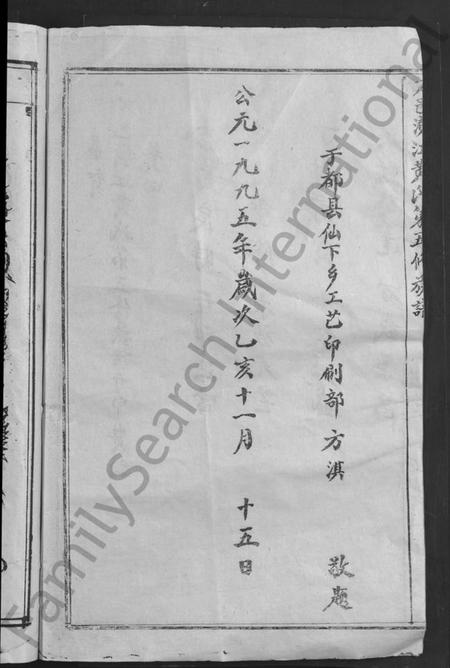 于都县仙下乡工艺印刷部 方淇 敬题
公元一九九五年歲次乙亥十一月 十五日
江黄 五修族譜
FamilySearch International